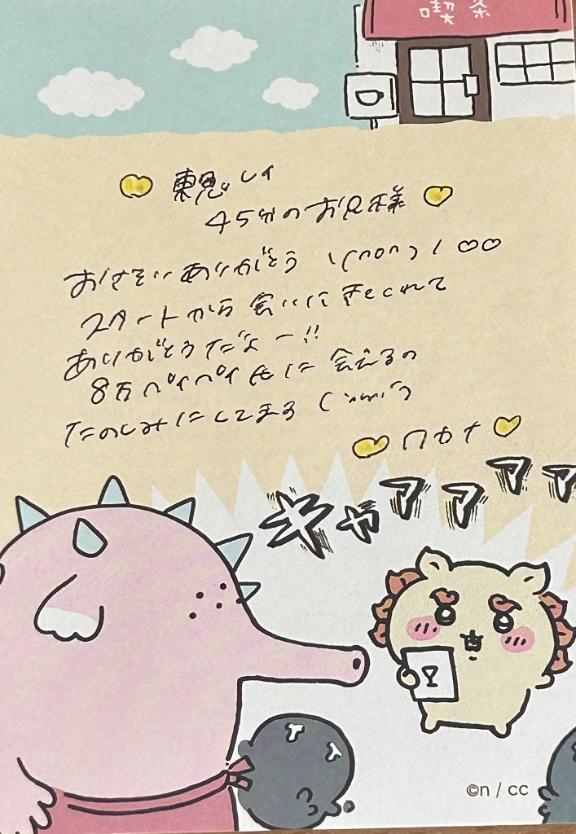 喫茶
レイ
45分のお兄様
おさそいありがとう \(^o^)/ ♡♡
スタートから会いにきてくれて
ありがとうだよー!!
8万ペイペイ 会えるの
たのしみにしてまる
ワカナ
キャアアアア
©n / cc